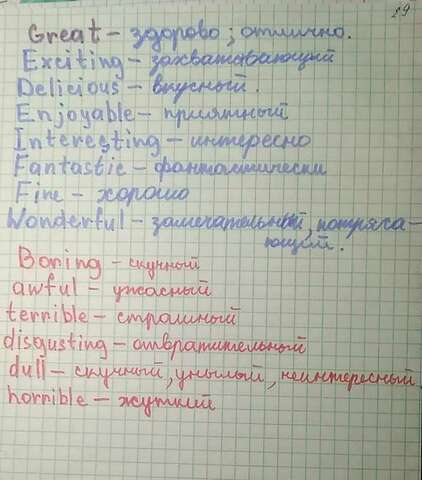 19
Great – здорово; отлично.
Exciting – захватывающий
Delicious – вкусный.
Enjoyable – приятный
Interesting – интересно
Fantastic – фантастически
Fine – хорошо
Wonderful – замечательный, потряса-
ющий.
Boring – скучный
awful – ужасный
terrible – страшный
disgusting – отвратительный
dull – скучный, унылый, неинтересный
horrible – жуткий